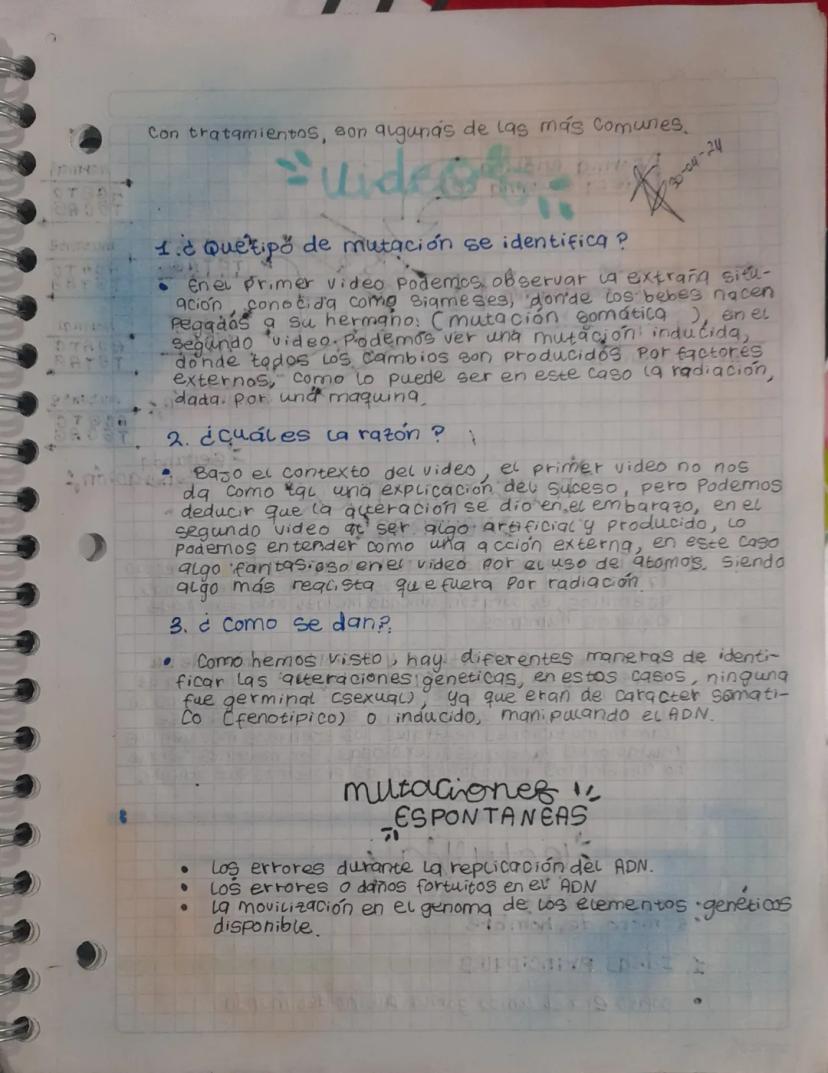 con tratamientos, son algunas de las más comunes.
Videos
30-04-24
1. ¿Que tipo de mutación se identifica?
• En el primer video podemos observar la extraña situ-
ación, conocida como siameses, donde los bebes nacen
pegados a su hermano: (mutación somática ), en el
segundo video podemos ver una mutación inducida,
donde todos los cambios son producidos por factores
externos, como lo puede ser en este caso la radiación,
dada por una maquina.
2. ¿Cuál es la razón?
• Bajo el contexto del video, el primer video no nos
da como tal una explicación del suceso, pero podemos
deducir que la alteración se dio en el embarazo, en el
segundo video al ser algo artificial y producido, lo
podemos entender como una acción externa, en este caso
algo fantasioso en el video por el uso de atomos, siendo
algo más realista que fuera por radiación.
3. ¿Como se dan?
• Como hemos visto, hay diferentes maneras de identi-
ficar las alteraciones geneticas, en estos casos, ninguna
fue germinal (sexual), ya que eran de caracter somati-
co (fenotipico) o inducido, manipulando el ADN.
mutaciones
ESPONTANEAS
• Los errores durante la replicación del ADN.
• Los errores o daños fortuitos en el ADN
• La movilización en el genoma de los elementos genéticos
disponible.